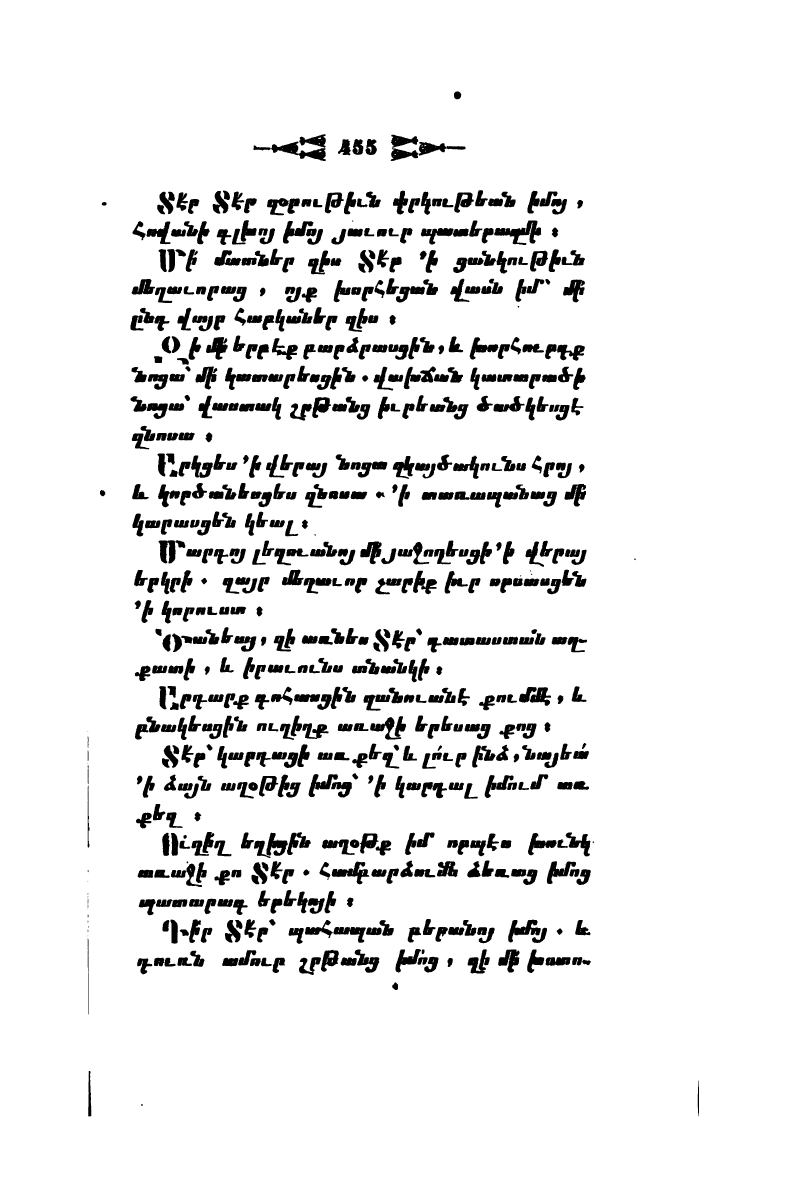 455
Տէր Տէր զօրութիւն փրկութեան իմոյ,
Հովանի գլխոյ իմոյ յաւուր պատերազմի ։
Մի՛ մատներ զիս Տէր ՚ի ցանկութիւն
մեղաւորաց, ոյք խորհեցան վասն իմ՝ մի
ընդ վայր հարկաներ զիս ։
Զի մի երբէք բարձրասցին, և խորհուրդք
նոցա՝ մի կատարեսցին. վախճան կատարածի
նոցա՝ վաստակ շրթանց իւրեանց ծածկեսցէ
զնոսա ։
Երկցես ՚ի վերայ նոցա զկայծակունս հրոյ,
և կործանեսցես զնոսա. ՚ի տառապանաց մի
կարասցեն կեալ ։
Մարդոյ լեզուանոյ մի յաջողեսցի ՚ի վերայ
երկրի. զայր մեղաւոր չարիք իւր որսասցեն
՚ի կորուստ ։
Ծանեայ, զի առնես Տէր՝ դատաստան աղ-
քատի, և իրաւունս տնանկի ։
Արդարք գոհասցին զանուանէ քումմէ, և
բնակեսցին ուղիղք առաջի երեսաց քոց ։
Տէր՝ կարդացի առ քեզ՝ և լո՛ւր ինձ, նայեա՛
՚ի ձայն աղօթից իմոց՝ ՚ի կարդալ իմում առ
քեզ ։
Ուղիղ եղիցին աղօթք իմ որպէս խունկ
առաջի քո Տէր. համբարձումն ձեռաց իմոց
պատարագ երեկոյի ։
Դի՛ր Տէր՝ պահապան բերանոյ իմոյ. և
դուռն ամուր շրթանց իմոց, զի մի խոտո-